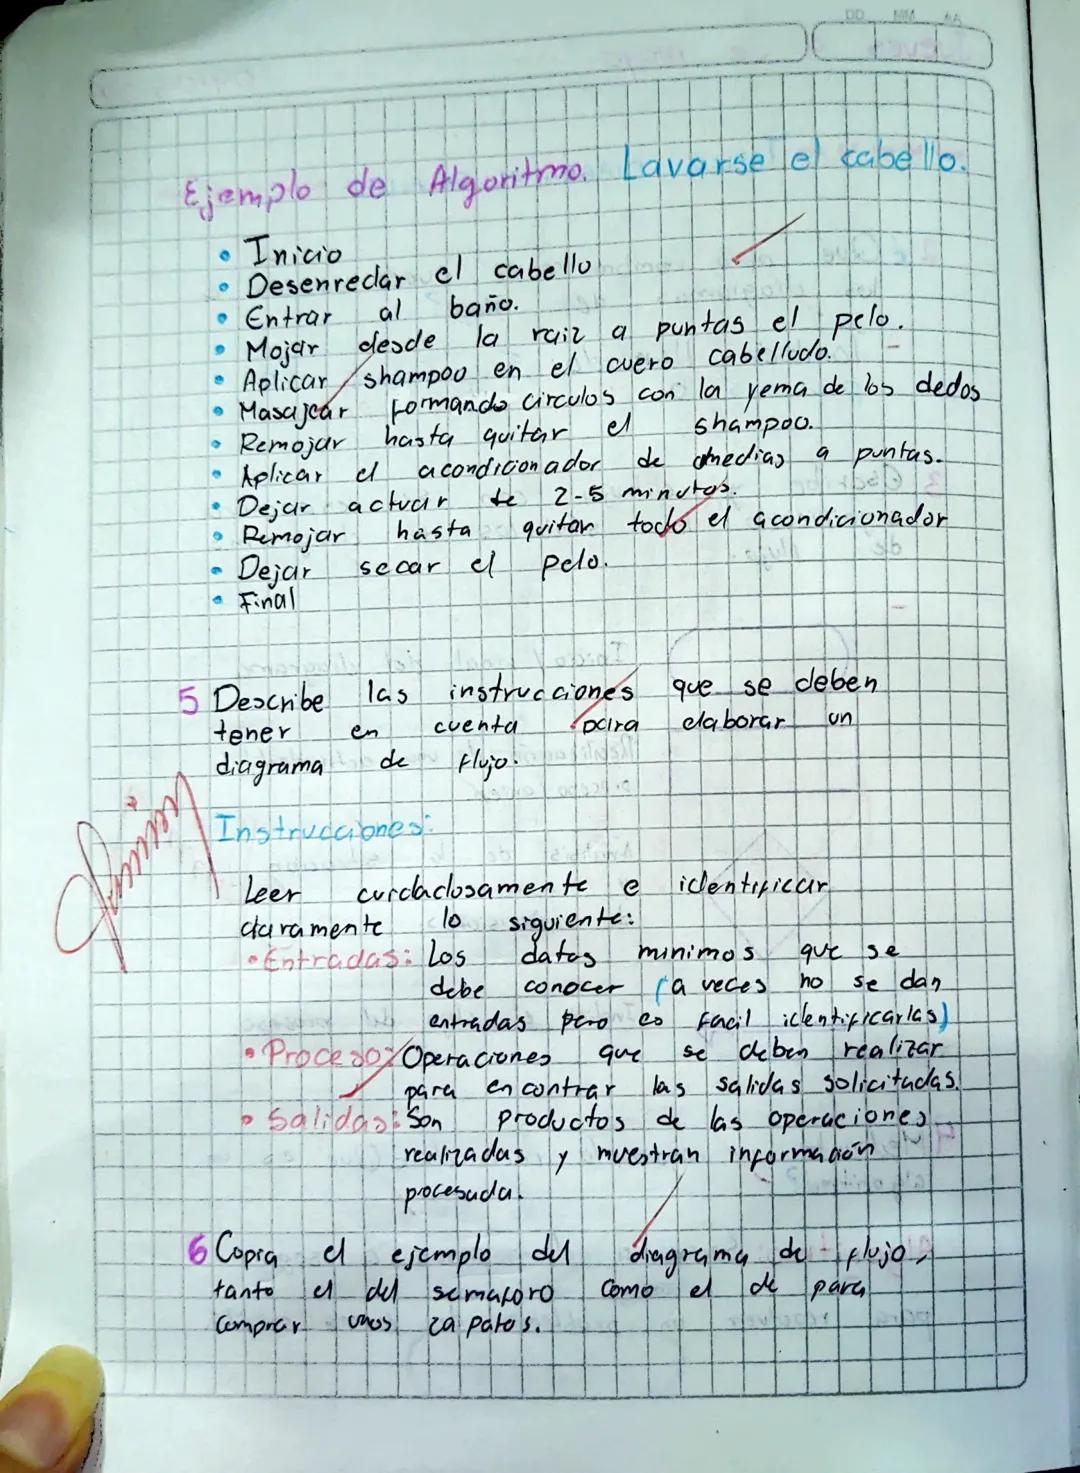 Ejemplo de Algoritmo. Lavarse el cabello.
• Inicio
• Desenredar el cabello
• Entrar al baño.
• Mojar desde la raiz a puntas el pelo.
• Aplicar shampoo en el cuero cabelludo.
• Masajear formando circulos con la yema de los dedos
• Remojar hasta quitar el shampoo.
• Aplicar el acondicionador de medias a puntas.
• Dejar actuar de 2-5 minutos.
• Remojar hasta quitar todo el acondicionador
• Dejar secar el pelo.
• Final
5 Describe las instrucciones que se deben
tener en cuenta para elaborar un
diagrama de flujo.
Instrucciones:
Leer cuidadosamente e identificar
claramente lo siguiente:
• Entradas: Los datos minimos que se
debe conocer (a veces no se dan
entradas pero es facil identificarlas)
• Proceso: Operaciones que se deben realizar
para encontrar las salidas solicitadas.
• Salidas: Son productos de las operaciones
realizadas y muestran información
procesada.
6 Copia el ejemplo del diagrama de flujo,
tanto el del semaforo como el de para
comprar unos zapatos.